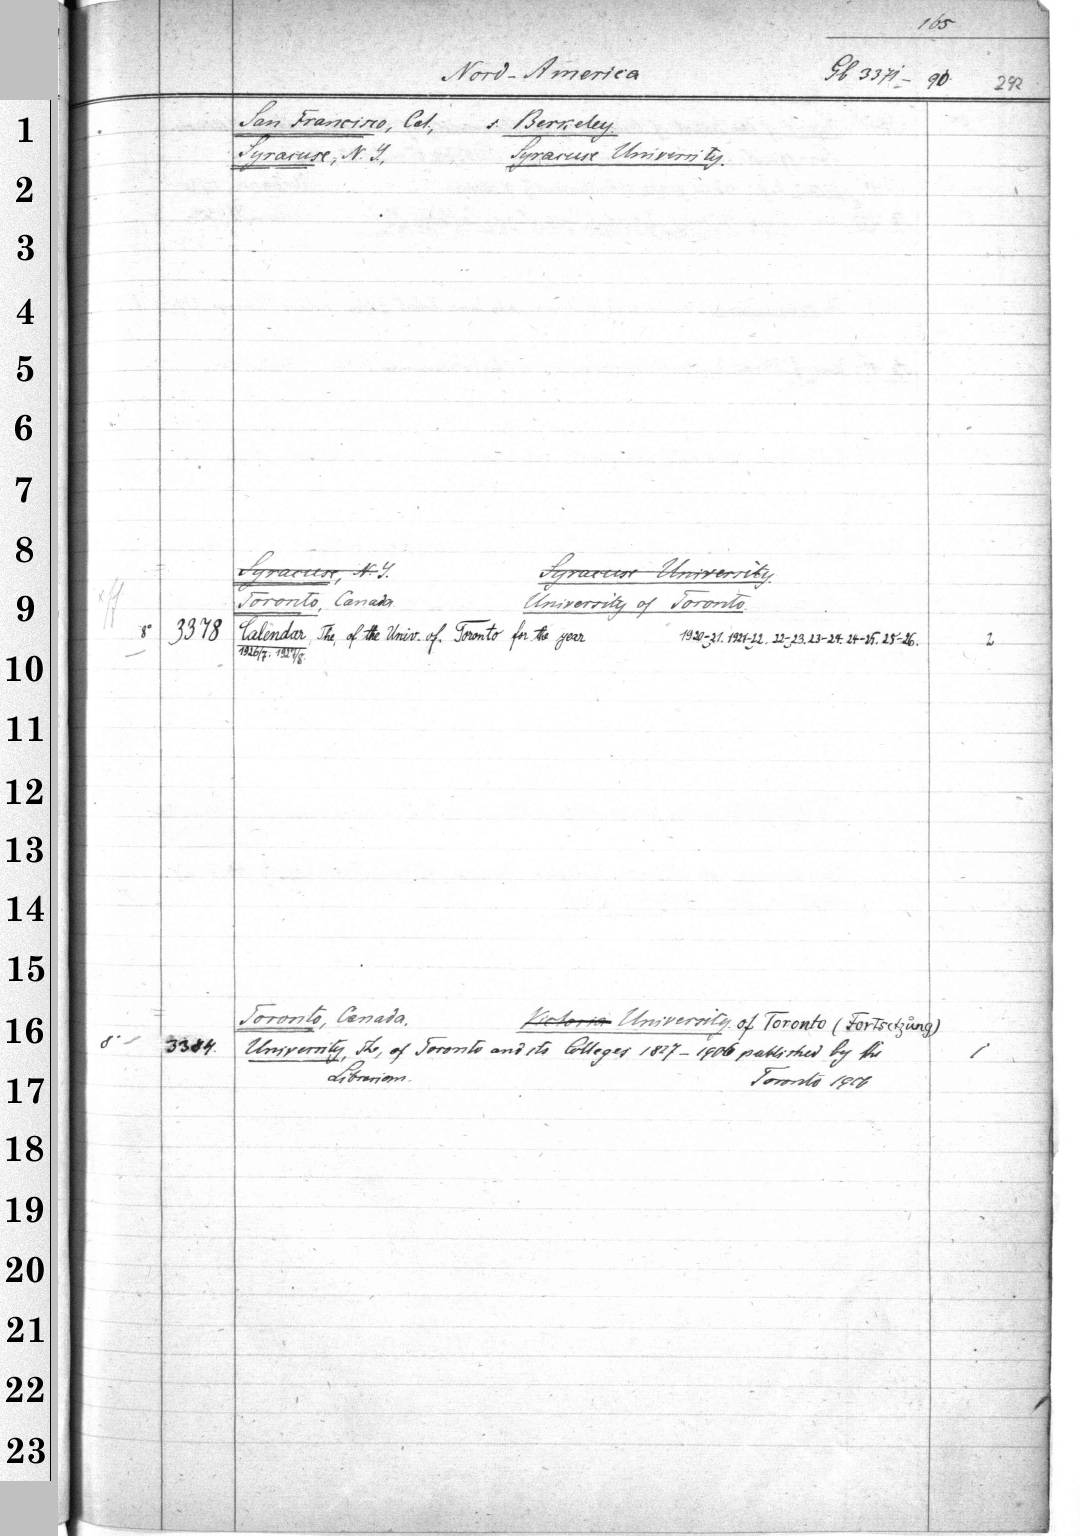 165
Nord-America Gb 3371- 90 292
1 San Francisco, Cal, s. Berkeley.
Syracuse, N. Y, Syracuse University.
2
3
4
5
6
7
8
Syracuse, N. Y. Syracuse University.
9 Toronto, Canada University of Toronto.
8° 3378 Calendar, The, of the Univ. of. Toronto for the year 1920-21. 1921-22. 22-23. 23-24. 24-25. 25-26. 2
1926/7. 1927/8.
10
11
12
13
14
15
Toronto, Canada. Victoria University of Toronto (Fortsetzung)
16
8° 3384. University, The, of Toronto and its Colleges 1827-1906 published by the 1
Librarian. Toronto 1906
17
18
19
20
21
22
23